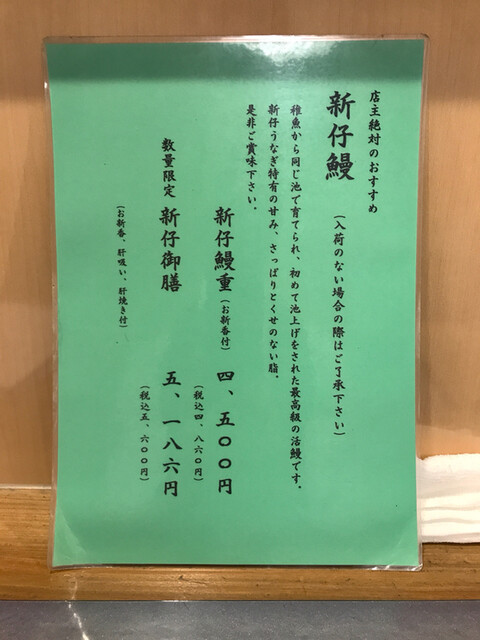 店主絶対のおすすめ
新仔鰻 (入荷のない場合の際はご了承下さい)
稚魚から同じ池で育てられ、初めて池上げをされた最高級の活鰻です。
新仔うなぎ特有の甘み、さっぱりとくせのない脂。
是非ご賞味下さい。
新仔鰻重(お新香付) 四、五〇〇円
(税込四、八六〇円)
数量限定 新仔御膳 五、一八六円
(税込五、六〇〇円)
(お新香、肝吸い、肝焼き付)